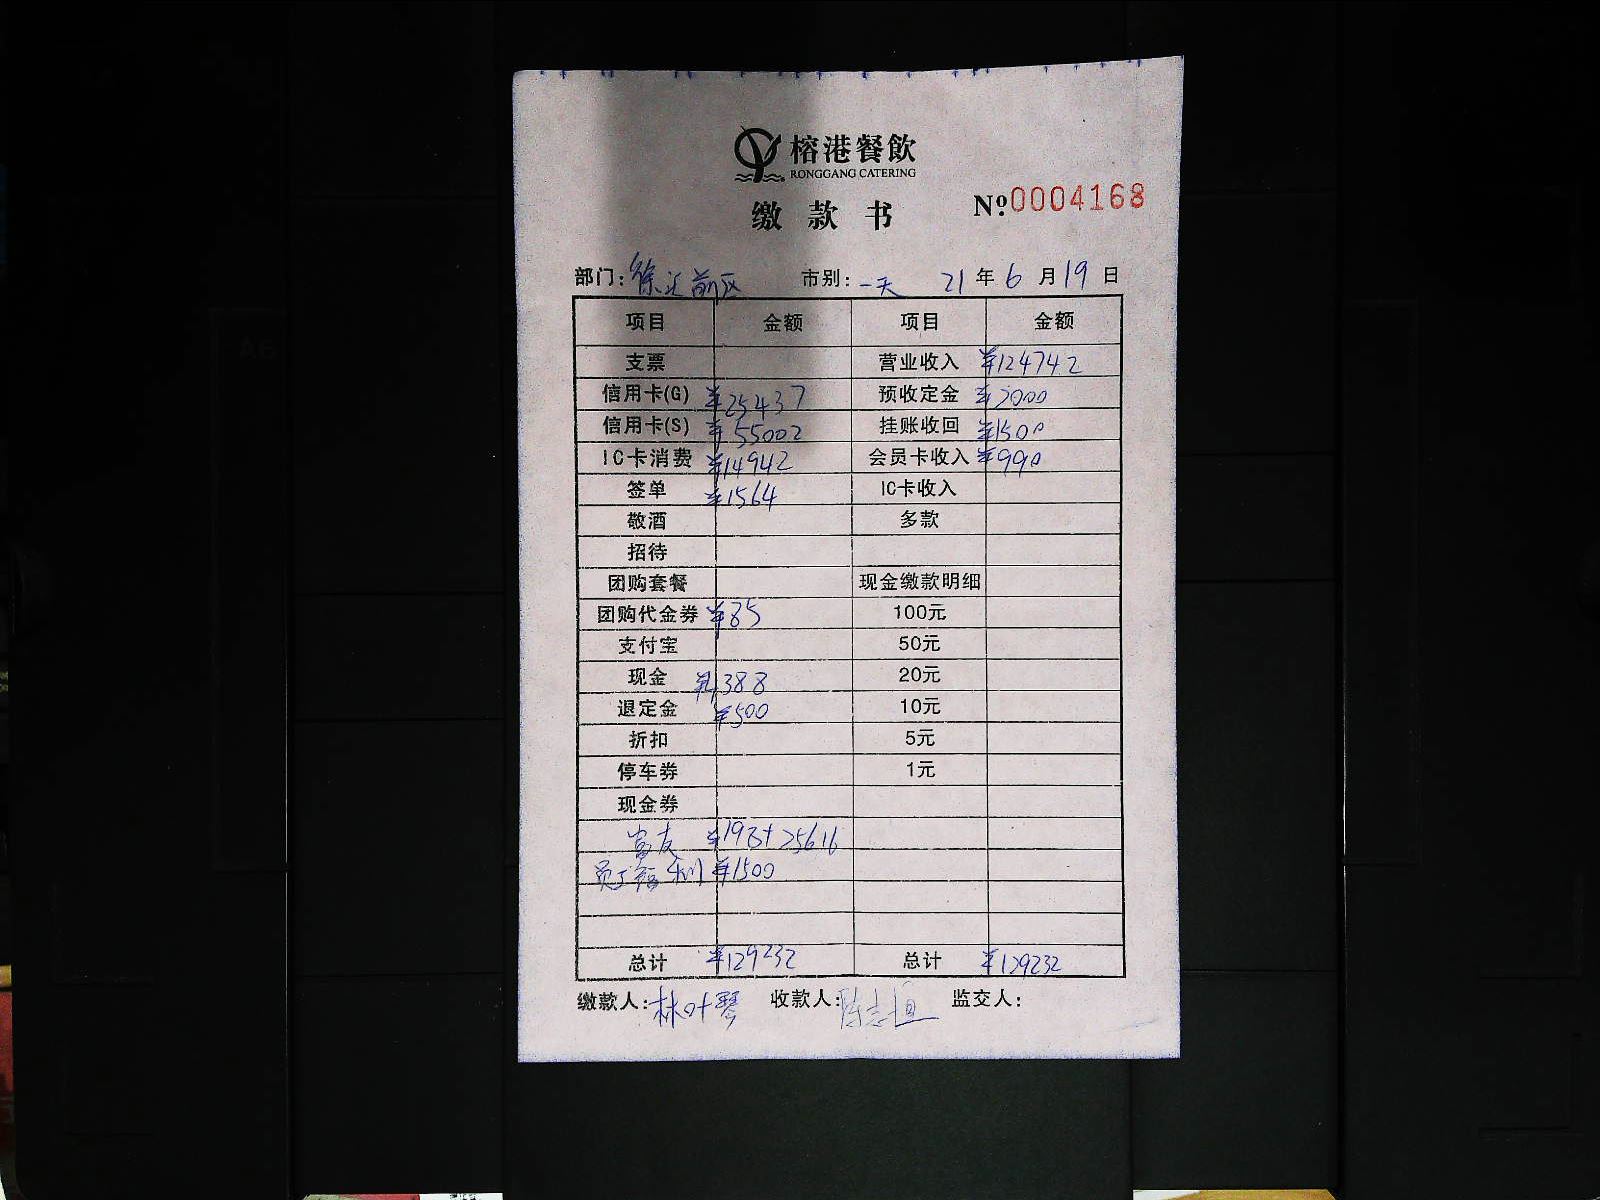 榕港餐飲
RONGGANG CATERING
缴款书 №0004168
部门: 徐汇前区 市别: 一天 21年6月19日
项目 金额 项目 金额
支票 营业收入 ¥124742
信用卡(G) ¥25437 预收定金 ¥2000
信用卡(S) ¥55002 挂账收回 ¥1500
IC卡消费 ¥14942 会员卡收入 ¥990
签单 ¥1564 IC卡收入
敬酒 多款
招待
团购套餐 现金缴款明细
团购代金券 ¥85 100元
支付宝 50元
现金 ¥4388 20元
退定金 ¥500 10元
折扣 5元
停车券 1元
现金券
富友 ¥198+25616
员工福利 ¥1500
总计 ¥129232 总计 ¥129232
缴款人: 林叶琴 收款人: 陈志恒 监交人: